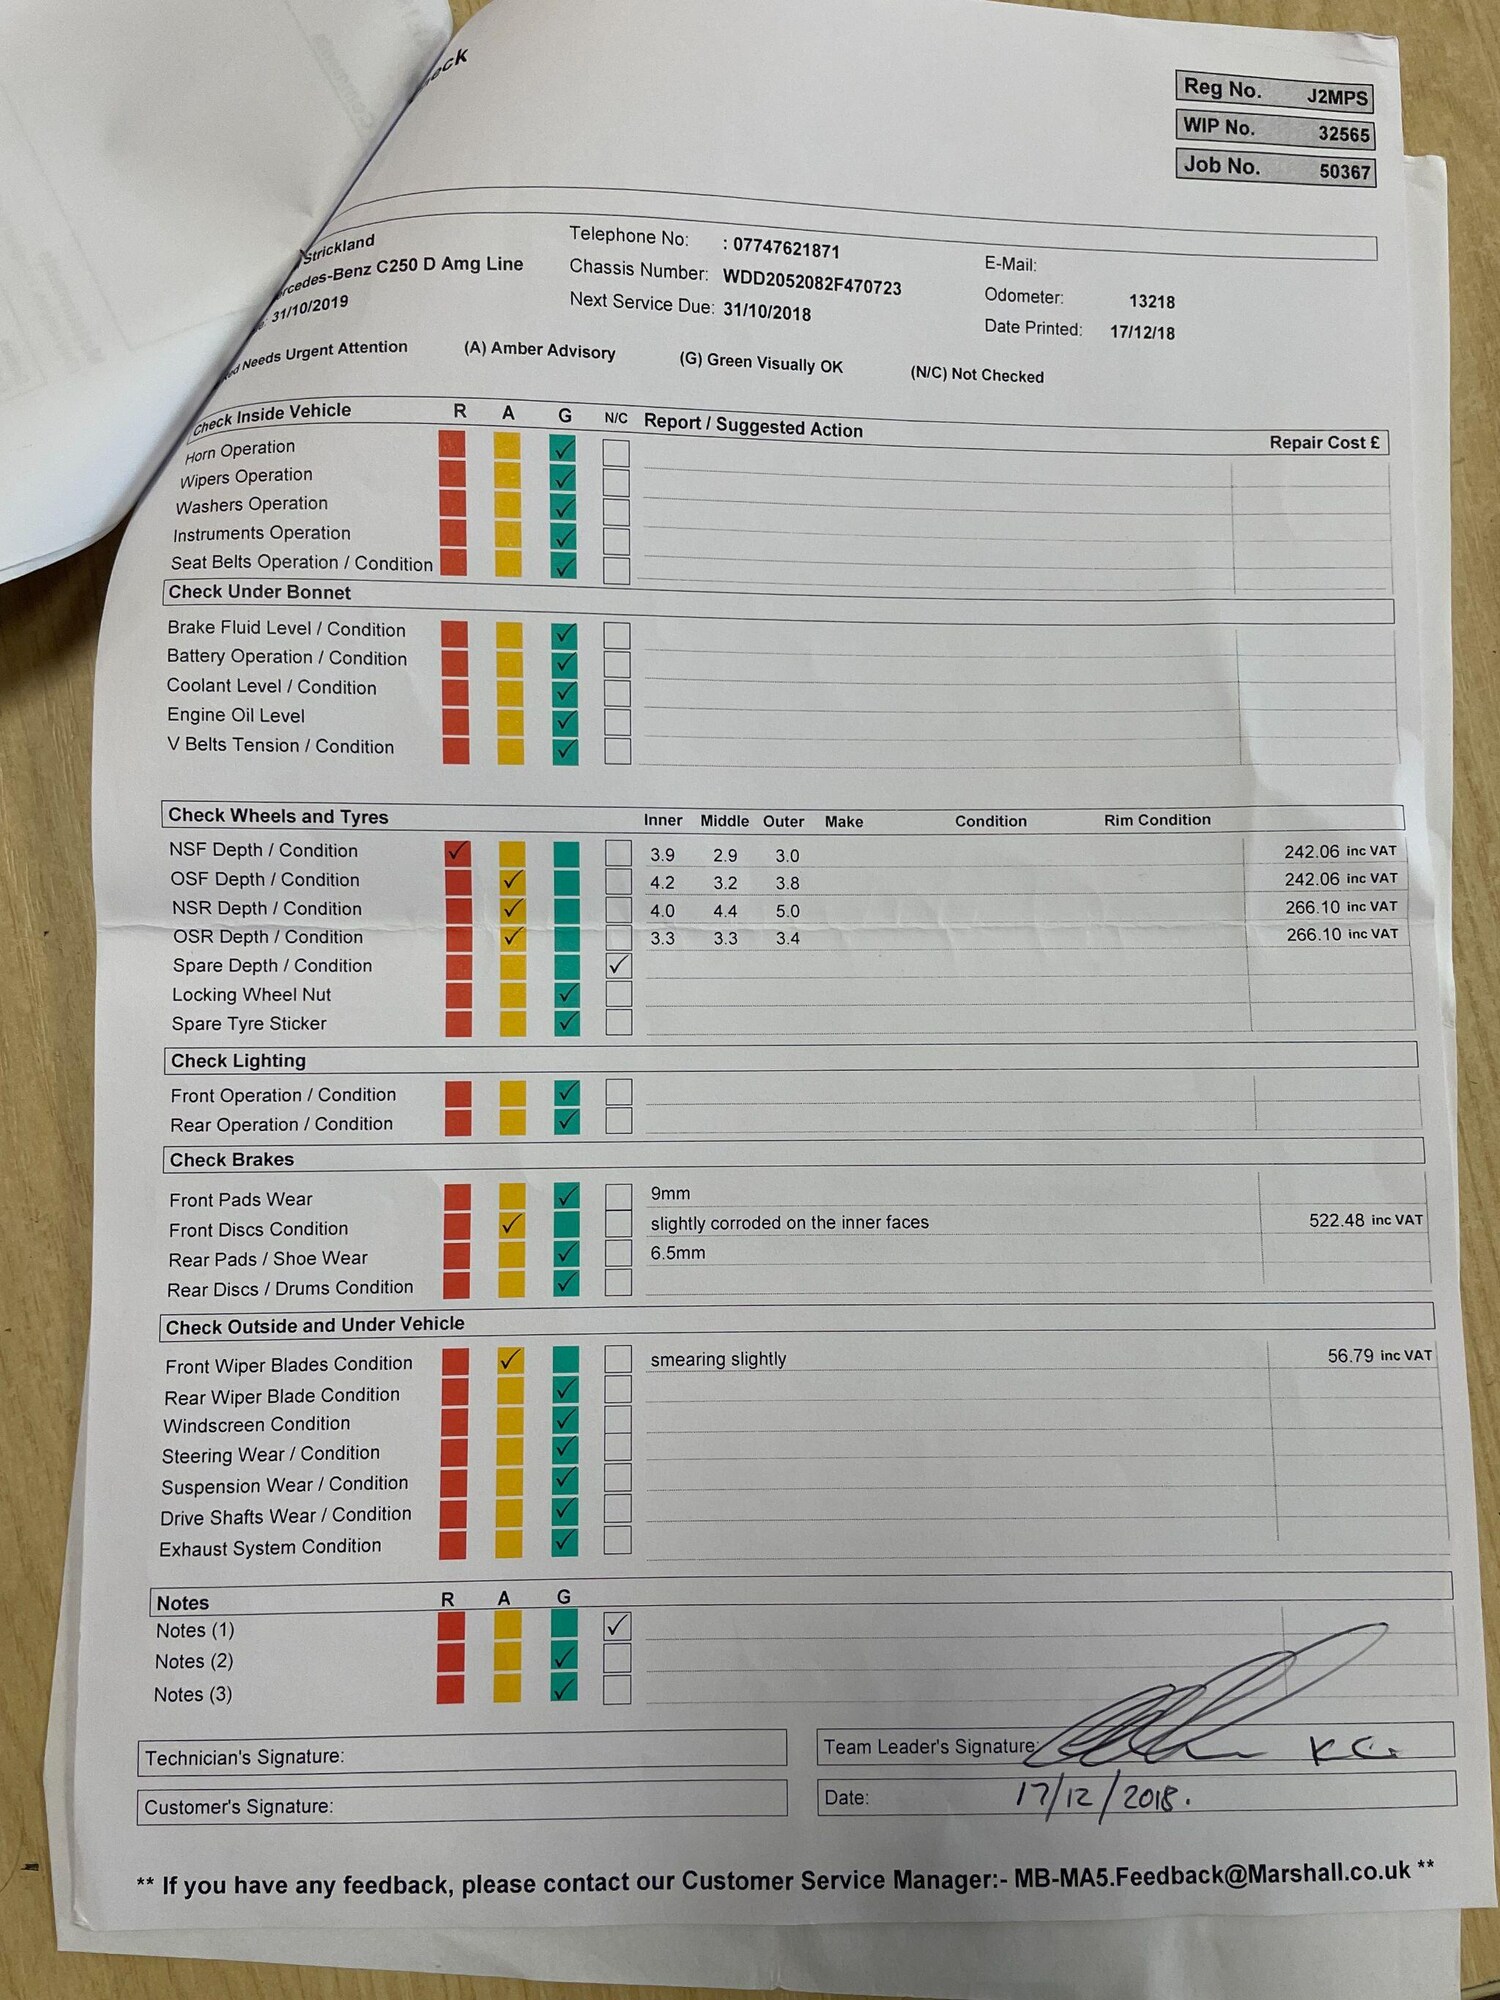 Reg No. J2MPS
WIP No. 32565
Job No. 50367
Strickland
Telephone No: : 07747621871
E-Mail:
Mercedes-Benz C250 D Amg Line
Chassis Number: WDD2052082F470723
Odometer: 13218
31/10/2019
Next Service Due: 31/10/2018
Date Printed: 17/12/18
Needs Urgent Attention (A) Amber Advisory (G) Green Visually OK (N/C) Not Checked
Check Inside Vehicle R A G N/C Report / Suggested Action Repair Cost £
Horn Operation ✓
Wipers Operation ✓
Washers Operation ✓
Instruments Operation ✓
Seat Belts Operation / Condition ✓
Check Under Bonnet
Brake Fluid Level / Condition ✓
Battery Operation / Condition ✓
Coolant Level / Condition ✓
Engine Oil Level ✓
V Belts Tension / Condition ✓
Check Wheels and Tyres Inner Middle Outer Make Condition Rim Condition
NSF Depth / Condition ✓ 3.9 2.9 3.0 242.06 inc VAT
OSF Depth / Condition ✓ 4.2 3.2 3.8 242.06 inc VAT
NSR Depth / Condition ✓ 4.0 4.4 5.0 266.10 inc VAT
OSR Depth / Condition ✓ 3.3 3.3 3.4 266.10 inc VAT
Spare Depth / Condition ✓
Locking Wheel Nut ✓
Spare Tyre Sticker ✓
Check Lighting
Front Operation / Condition ✓
Rear Operation / Condition ✓
Check Brakes
Front Pads Wear ✓ 9mm
Front Discs Condition ✓ slightly corroded on the inner faces 522.48 inc VAT
Rear Pads / Shoe Wear ✓ 6.5mm
Rear Discs / Drums Condition ✓
Check Outside and Under Vehicle
Front Wiper Blades Condition ✓ smearing slightly 56.79 inc VAT
Rear Wiper Blade Condition ✓
Windscreen Condition ✓
Steering Wear / Condition ✓
Suspension Wear / Condition ✓
Drive Shafts Wear / Condition ✓
Exhaust System Condition ✓
Notes R A G
Notes (1) ✓
Notes (2) ✓
Notes (3) ✓
Technician's Signature:
Team Leader's Signature:
Customer's Signature:
Date: 17/12/2018.
** If you have any feedback, please contact our Customer Service Manager:- MB-MA5.Feedback@Marshall.co.uk **